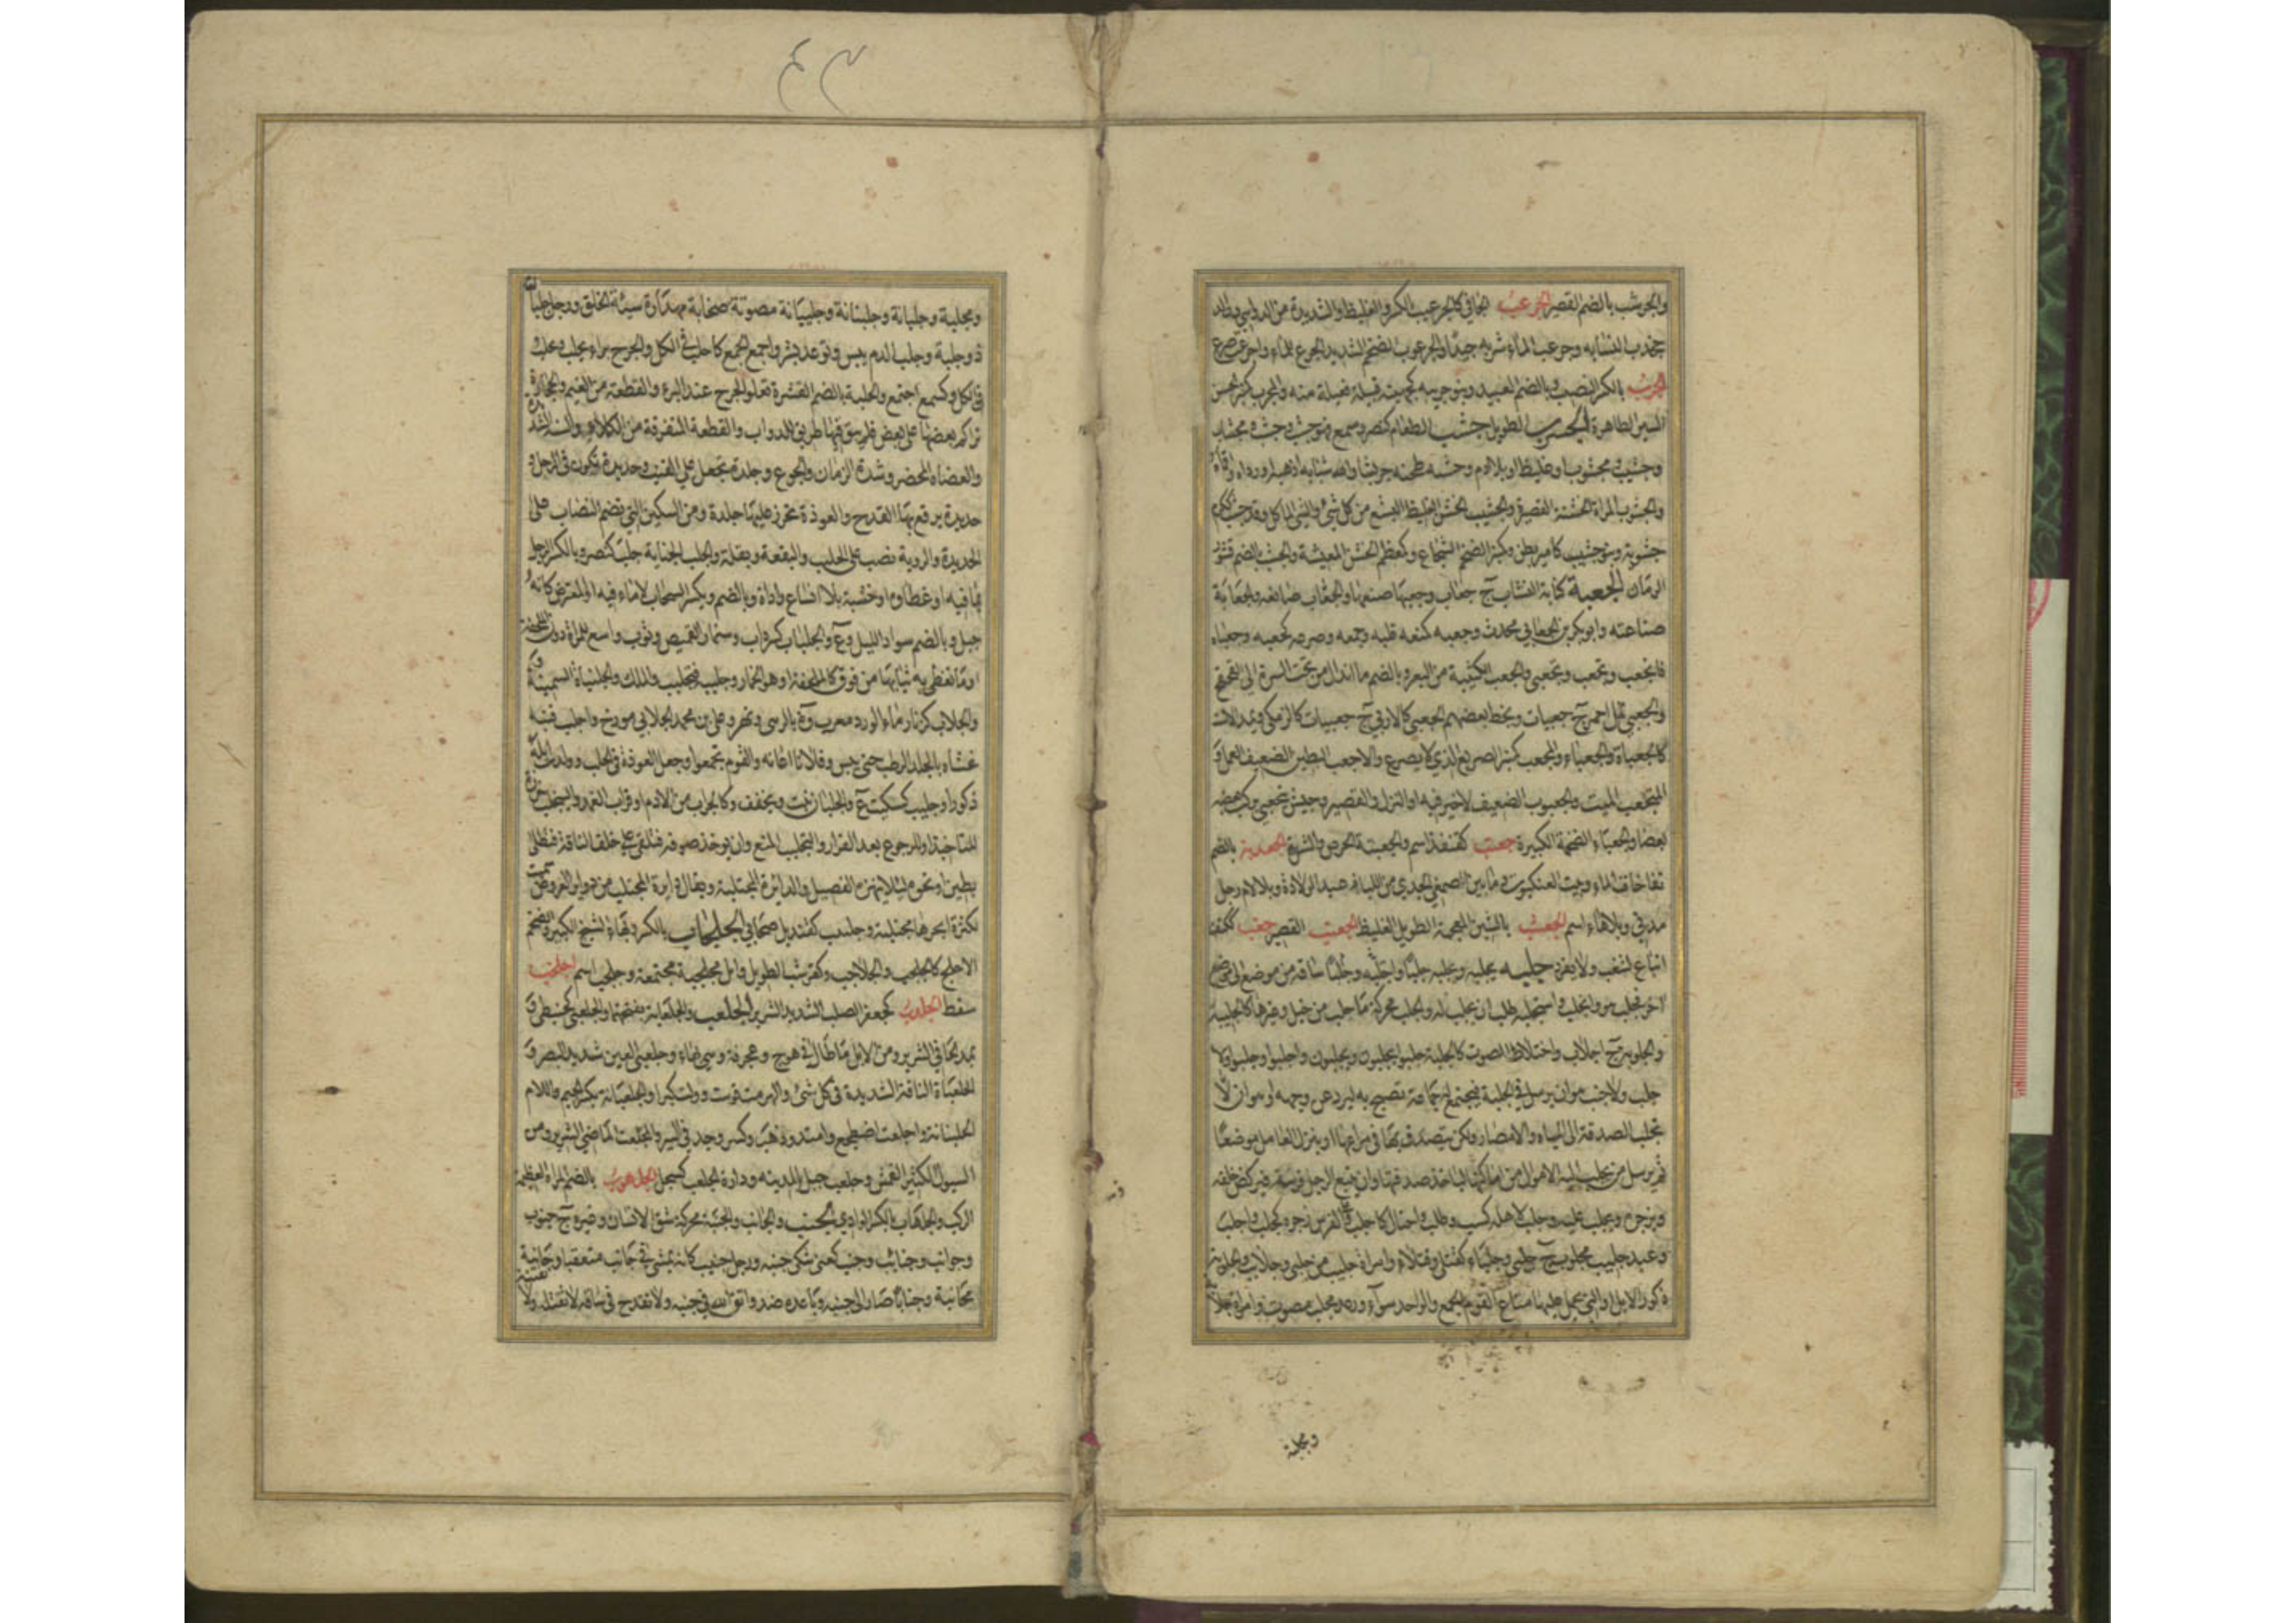 والجرشب بالضم القصير الجرعب الجافي كالجرعيب بالكسر والغليظ والشديدة من الدواهي وطالد
وجرعب الماء شربه جيدا والجرعوب الضخم الشديد الجرع للماء واجرعب صرع
الجزب بالكسر النصيب وبالضم العبيد وبنو جزيبة كجهينة قبيلة فعيلة منه والمجزب كمنبر الحسن
السبر الطاهره الجسرب الطويل جشب الطعام كنصر وسمع فهو جشب وجشب ومجشاب
وجشيب ومجشوب اي غليظ او بلا ادم وجشبه طحنه جريشا والله شبابه اذهبه او رداه واقماه
والجشوب المراة الخشنة القصيرة والجشيب الخشن الغليظ البشع من كل شيء والسيئ الماكل وقد جشب ككرم
جشوبة وبنو جشيب كامير بطن وكمنبر الضخم الشجاع وكمعظم الخشن المعيشة والجشب بالضم قشور
الرمان الجعبة كنانة النشاب ج جعاب وجعبها صنعها والجعاب صانعه والجعابة
صناعته وابو بكر بن الجعابي محدث وجعبه كمنعه قلبه وجمعه وصرعه كجعبه وجعباه
فانجعب وتجعب وتجعبى والجعب الكثيبة من البعر وبالضم ما اندال من تحت السرة الى القحقح
والجعبى نمل احمر ج جعبيات وبخط بعضهم الجعبى كالاربى ج جعبيات كالزمكى ويمد الاست
كالجعباة والجعباء والمجعب كمنبر الصريع الذي لا يصرع والاجعب البطين الضعيف العمل و
المتجعب الميت والجعبوب الضعيف لا خير فيه او النذل والقصير وجيش يتجعبى يركب بعضه
بعضا والجعباء الضخمة الكبيرة جعتب كقنفذ اسم والجعتبة الحرص والشره الجعدبة بالضم
نفاخات الماء وبيت العنكبوت وما بين صمغي الجدي من اللبا عند الولادة وبلا لام رجل
مدني وبلا هاء اسم الجعشب بالشين المعجمة الطويل الغليظ الجعنب القصير جغب ككتف
اتباع لشغب ولا يفرد جلبه يجلبه ويجلبه جلبا وجلبا واجتلبه ساقه من موضع الى موضع
اخر فجلب هو وانجلب واستجلبه طلب ان يجلب له والجلب محركة ما جلب من خيل وغيرها كالجليبة
والجلوبة ج اجلاب واختلاط الصوت كالجلبة جلبوا يجلبون ويجلبون واجلبوا وجلبوا ولا
جلب ولا جنب هو ان يرسل في الحلبة فيجتمع له جماعة تصيح به ليرد عن وجهه او هو ان لا
تجلب الصدقة الى المياه والامصار ولكن يتصدق بها في مراعيها او ينزل العامل موضعا
ثم يرسل من يجلب اليه الاموال من اماكنها لياخذ صدقتها وان يتبع الرجل فرسه فيركض خلفه
ويزجره ويجلب عليه وجلب لاهله كسب وطلب واحتال كاجلب وعلى الفرس زجره كجلب واجلب
وعبد جليب مجلوب ج جلبى وجلباء كقتلى وقتلاء وامراة جليب من جلبى وجلائب والجلوبة
ذكور الابل او التي يحمل عليها متاع القوم الجمع والواحد سواء ورعد مجلب مصوت وامراة جلابة
ومجلبة
ومجلبة وجلبانة وجلبنانة وجلبانة مصوتة صخابة مهذارة سيئة الخلق ورجل جلبان
ذو جلبة وجلب الدم يبس وتوعد بشر واجمع الجمع كاجلب في الكل والجرح براء يجلب ويجلب
في الكل وكسمع اجتمع والجلبة بالضم القشرة تعلو الجرح عند البرء والقطعة من الغيم والحجارة
تراكم بعضها على بعض فلم يبق فيها طريق للدواب والقطعة المتفرقة من الكلاء والسنة الشديدة
والعضاه المخضر وشدة الزمان والجوع وجلدة تجعل على القتب وحديدة تكون في الرحل و
حديدة يرقع بها القدح والعوذة تخرز عليها جلدة ومن السكين التي تضم النصاب على
الحديدة والروبة تصب على الحليب والبقعة وبقلة والجلب الجناية جلب كنصر وبالكسر الرحل
بما فيه او غطاؤه او خشبه بلا انساع واداة وبالضم ويكسر السحاب لا ماء فيه او المعترض كانه
جبل وبالضم سواد الليل وع والجلباب كسرداب وسنمار القميص وثوب واسع للمراة دون الملحفة
او ما تغطي به ثيابها من فوق كالملحفة او هو الخمار وجلببه فتجلبب والملك والجلنباة السمينة
والجلاب كزنار ماء الورد معرب وة بالرهى ونهر وعلي بن محمد الجلابي مورخ واجلب قتبه
غشاه بالجلد الرطب حتى يبس وفلانا اعانه والقوم تجمعوا وجعل العوذة في الجلب وولدت ابله
ذكورا وجليب كسكيت ع والجلبان نبت ويخفف وكالجراب من الادم او قراب الغمد والينجلب خرزة
للتاخيذ او للرجوع بعد الفرار والتجلب المنع وان توخذ صوفة فتلقى على خلف الناقة فتطلى
بطين او نحوه لئلا ينهزه الفصيل والدائرة المجتلبة ويقال دائرة المجتلب من دوائر العروض سميت
لكثرة ابحرها مجتلبة وجلبيب كقنديل صحابي الجلحاب بالكسر وبهاء الشيخ الكبير والضخم
الاجلح كالجلحب والجلاحب وكقرشب الطويل وابل مجلحبة مجتمعة وجلحب اسم اجلخب
سقط الجلعب كجعفر الصلب الشديد الشرير الجلعب والجلعابة بفتحهما والجلعبى كحبنطى و
يمد الجافي الشرير ومن الابل ما طال في هوج وعجرفة وهي بهاء وجلعبى العين شديد البصر و
الجلعباة الناقة الشديدة في كل شيء والهرمة قوست وولت كبرا والجلعبانة بكسر الجيم واللام
الجلبنانة واجلعب اضطجع وامتد وذهب وكسر وجد في السير والمجلعب الماضي الشرير ومن
السيول الكثير القمش وجلعب جبل بالمدينة ودارة الجلعب كسبحل الجلهوب بالضم المراة العظيمة
الركب والجلهاب بالكسر الوادي الجنب والجانب والجنبة محركة شق الانسان وغيره ج جنوب
وجوانب وجنائب وجنب كعني شكى جنبه ورجل جنيب كانه يمشي في جانب متعقبا وجانبه
مجانبة وجنابا صار الى جنبه وباعده ضد واتق الله في جنبه ولا تقدح في ساقه لا تقتله ولا